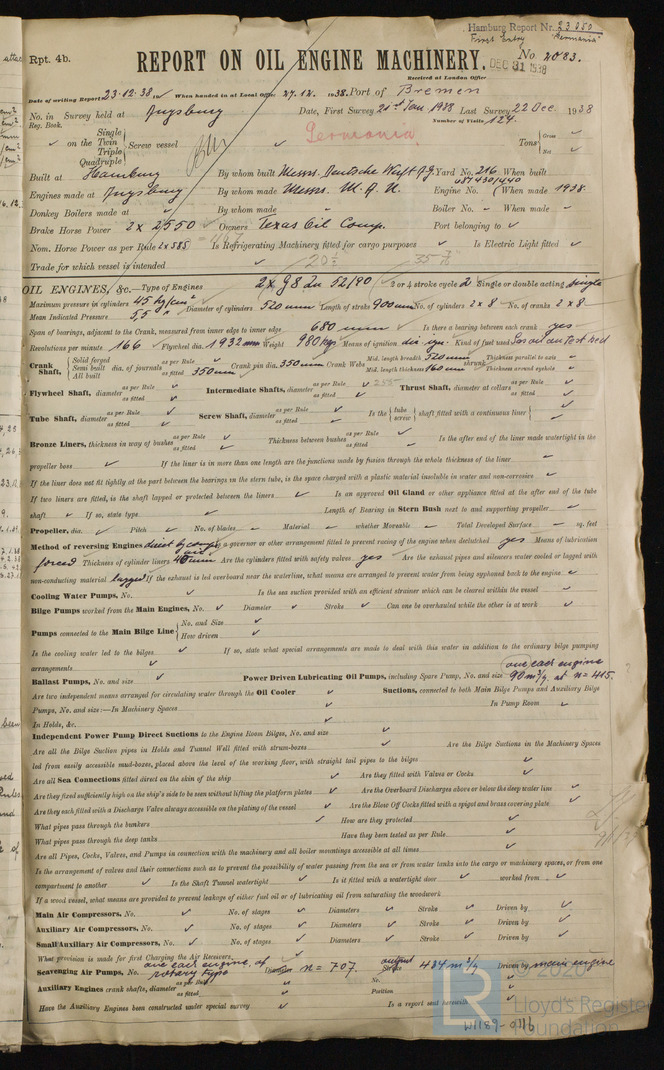 Hamburg Report Nr. 23350
First Entry "Germania"
Rpt. 4b.
REPORT ON OIL ENGINE MACHINERY.
No. 2083.
DEC 31 1938
Received at London Office
Date of writing Report 23.12.38 When handed in at Local Office 27.12. 1938. Port of Bremen
No. in Survey held at Augsburg Date, First Survey 21st Jan. 1938 Last Survey 22 Dec. 1938
Reg. Book. Number of Visits 124.
Germania.
Single
on the Twin Screw vessel Tons Gross
Triple Net
Quadruple
Built at Hamburg By whom built Messrs. Deutsche Werft A.G. Yard No. 216 When built
Engines made at Augsburg By whom made Messrs. M.A.N. Engine No. 487430/440 When made 1938.
Donkey Boilers made at By whom made Boiler No. When made
Brake Horse Power 2 x 2550 Owners Texas Oil Comp. Port belonging to
Nom. Horse Power as per Rule 2 x 585 Is Refrigerating Machinery fitted for cargo purposes Is Electric Light fitted
Trade for which vessel is intended
OIL ENGINES, &c.—Type of Engines 2 x G8 Zu 52/90 2 or 4 stroke cycle 2 Single or double acting single
Maximum pressure in cylinders 45 kg/cm² Diameter of cylinders 520 mm Length of stroke 900 mm No. of cylinders 2 x 8 No. of cranks 2 x 8
Mean Indicated Pressure 5,5 "
Span of bearings, adjacent to the Crank, measured from inner edge to inner edge 680 mm Is there a bearing between each crank yes
Revolutions per minute 166 Flywheel dia. 1932 mm Weight 980 kgs Means of ignition Kind of fuel used
Crank Shaft, Solid forged Semi built All built dia. of journals as per Rule as fitted 350 mm Crank pin dia. 350 mm Crank Webs Mid. length breadth 520 mm Mid. length thickness 160 mm shrunk Thickness parallel to axis Thickness around eyehole
Flywheel Shaft, diameter as per Rule as fitted Intermediate Shafts, diameter as per Rule as fitted Thrust Shaft, diameter at collars as per Rule as fitted
Tube Shaft, diameter as per Rule as fitted Screw Shaft, diameter as per Rule as fitted Is the tube screw shaft fitted with a continuous liner
Bronze Liners, thickness in way of bushes as per Rule as fitted Thickness between bushes as per Rule as fitted Is the after end of the liner made watertight in the
propeller boss If the liner is in more than one length are the junctions made by fusion through the whole thickness of the liner
If the liner does not fit tightly at the part between the bearings in the stern tube, is the space charged with a plastic material insoluble in water and non-corrosive
If two liners are fitted, is the shaft lapped or protected between the liners Is an approved Oil Gland or other appliance fitted at the after end of the tube
shaft If so, state type Length of Bearing in Stern Bush next to and supporting propeller
Propeller, dia. Pitch No. of blades Material whether Moveable Total Developed Surface sq. feet
Method of reversing Engines direct by comp. air Is a governor or other arrangement fitted to prevent racing of the engine when declutched yes Means of lubrication
forced Thickness of cylinder liners 40 mm Are the cylinders fitted with safety valves yes Are the exhaust pipes and silencers water cooled or lagged with
non-conducting material lagged If the exhaust is led overboard near the waterline, what means are arranged to prevent water from being syphoned back to the engine
Cooling Water Pumps, No. Is the sea suction provided with an efficient strainer which can be cleared within the vessel
Bilge Pumps worked from the Main Engines, No. Diameter Stroke Can one be overhauled while the other is at work
Pumps connected to the Main Bilge Line No. and Size
How driven
Is the cooling water led to the bilges If so, state what special arrangements are made to deal with this water in addition to the ordinary bilge pumping
arrangements
Ballast Pumps, No. and size Power Driven Lubricating Oil Pumps, including Spare Pump, No. and size one each engine 90 m³/h. at n = 415.
Are two independent means arranged for circulating water through the Oil Cooler Suctions, connected to both Main Bilge Pumps and Auxiliary Bilge
Pumps, No. and size:—In Machinery Spaces In Pump Room
In Holds, &c.
Independent Power Pump Direct Suctions to the Engine Room Bilges, No. and size
Are all the Bilge Suction pipes in Holds and Tunnel Well fitted with strum-boxes Are the Bilge Suctions in the Machinery Spaces
led from easily accessible mud-boxes, placed above the level of the working floor, with straight tail pipes to the bilges
Are all Sea Connections fitted direct on the skin of the ship Are they fitted with Valves or Cocks
Are they fixed sufficiently high on the ship's side to be seen without lifting the platform plates Are the Overboard Discharges above or below the deep water line
Are they each fitted with a Discharge Valve always accessible on the plating of the vessel Are the Blow Off Cocks fitted with a spigot and brass covering plate
What pipes pass through the bunkers How are they protected
What pipes pass through the deep tanks Have they been tested as per Rule
Are all Pipes, Cocks, Valves, and Pumps in connection with the machinery and all boiler mountings accessible at all times
Is the arrangement of valves and their connections such as to prevent the possibility of water passing from the sea or from water tanks into the cargo or machinery spaces, or from one
compartment to another Is the Shaft Tunnel watertight Is it fitted with a watertight door worked from
If a wood vessel, what means are provided to prevent leakage of either fuel oil or of lubricating oil from saturating the woodwork
Main Air Compressors, No. No. of stages Diameters Stroke Driven by
Auxiliary Air Compressors, No. No. of stages Diameters Stroke Driven by
Small Auxiliary Air Compressors, No. No. of stages Diameters Stroke Driven by
What provision is made for first Charging the Air Receivers
Scavenging Air Pumps, No. one each engine, of rotary type Diameter n = 707. output Stroke 484 m³/h Driven by main engine
Auxiliary Engines crank shafts, diameter as per Rule as fitted No. Position
Have the Auxiliary Engines been constructed under special survey Is a report sent herewith
© 2020
Lloyd's Register
Foundation
LR
W1189-0116